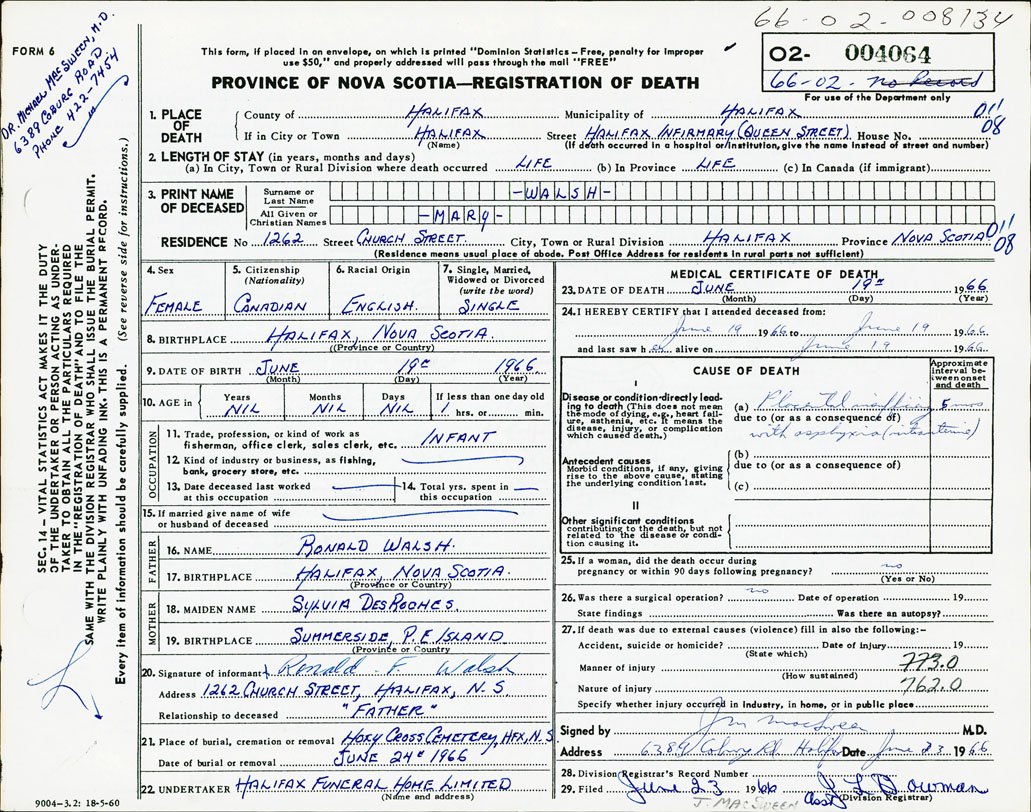 66-02-008134
FORM 6
DR. MICHAEL MACSWEEN, M.D.
6389 COBURG ROAD
PHONE 422-7454
This form, if placed in an envelope, on which is printed "Dominion Statistics - Free, penalty for improper
use $50," and properly addressed will pass through the mail "FREE"
PROVINCE OF NOVA SCOTIA—REGISTRATION OF DEATH
02- 004064
66-02- no Record
For use of the Department only
011
08
1. PLACE OF DEATH
County of HALIFAX Municipality of HALIFAX
If in City or Town HALIFAX Street HALIFAX INFIRMARY (QUEEN STREET) House No.
(Name) (If death occurred in a hospital or institution, give the name instead of street and number)
2. LENGTH OF STAY (in years, months and days)
(a) In City, Town or Rural Division where death occurred LIFE (b) In Province LIFE (c) In Canada (if immigrant)
3. PRINT NAME OF DECEASED
Surname or Last Name -WALSH-
All Given or Christian Names -MARY-
RESIDENCE No 1262 Street CHURCH STREET. City, Town or Rural Division HALIFAX Province NOVA SCOTIA
011
08
(Residence means usual place of abode. Post Office Address for residents in rural parts not sufficient)
4. Sex FEMALE
5. Citizenship (Nationality) CANADIAN
6. Racial Origin ENGLISH.
7. Single, Married, Widowed or Divorced (write the word) SINGLE
8. BIRTHPLACE HALIFAX, NOVA SCOTIA.
(Province or Country)
9. DATE OF BIRTH JUNE 19 1966
(Month) (Day) (Year)
10. AGE in Years NIL Months NIL Days NIL If less than one day old 1 hrs. or min.
OCCUPATION
11. Trade, profession, or kind of work as
fisherman, office clerk, sales clerk, etc. INFANT
12. Kind of industry or business, as fishing,
bank, grocery store, etc.
13. Date deceased last worked
at this occupation
14. Total yrs. spent in
this occupation
15. If married give name of wife
or husband of deceased
FATHER
16. NAME RONALD WALSH.
17. BIRTHPLACE HALIFAX, NOVA SCOTIA.
(Province or Country)
MOTHER
18. MAIDEN NAME SYLVIA DESROCHES
19. BIRTHPLACE SUMMERSIDE, P.E ISLAND
(Province or Country)
20. Signature of informant Ronald F. Walsh
Address 1262 CHURCH STREET, HALIFAX, N.S.
Relationship to deceased "FATHER"
21. Place of burial, cremation or removal HOXY CROSS CEMETERY, HFX, N.S
Date of burial or removal JUNE 24 1966
22. UNDERTAKER HALIFAX FUNERAL HOME LIMITED
(Name and address)
9004-3.2: 18-5-60
MEDICAL CERTIFICATE OF DEATH
23. DATE OF DEATH JUNE 19 1966
(Month) (Day) (Year)
24. I HEREBY CERTIFY that I attended deceased from:
June 19 1966 to June 19 1966
and last saw her alive on June 19 1966
CAUSE OF DEATH
Approximate interval between onset and death
I
Disease or condition directly leading to death (This does not mean
the mode of dying, e.g., heart failure, asthenia, etc. It means the
disease, injury, or complication
which caused death.)
(a) Placental insufficiency 5 mos
due to (or as a consequence of)
with asphyxia (intrauterine)
Antecedent causes
Morbid conditions, if any, giving
rise to the above cause, stating
the underlying condition last.
(b)
due to (or as a consequence of)
(c)
II
Other significant conditions
contributing to the death, but not
related to the disease or condition causing it.
25. If a woman, did the death occur during
pregnancy or within 90 days following pregnancy? no
(Yes or No)
26. Was there a surgical operation? no Date of operation 19
State findings Was there an autopsy?
27. If death was due to external causes (violence) fill in also the following:-
Accident, suicide or homicide? Date of injury 19
(State which)
Manner of injury 773.0
(How sustained)
Nature of injury 762.0
Specify whether injury occurred in industry, in home, or in public place
Signed by J M MacSween M.D.
Address 6389 Coburg Rd. Halifax Date June 23 1966
28. Division Registrar's Record Number
29. Filed June 23 1966 Bowman
Asst (Division Registrar)
J. MACSWEEN
SEC. 14 – VITAL STATISTICS ACT MAKES IT THE DUTY
OF THE UNDERTAKER OR PERSON ACTING AS UNDERTAKER TO OBTAIN ALL THE PARTICULARS REQUIRED
IN THE "REGISTRATION OF DEATH" AND TO FILE THE
SAME WITH THE DIVISION REGISTRAR WHO SHALL ISSUE THE BURIAL PERMIT.
WRITE PLAINLY WITH UNFADING INK. THIS IS A PERMANENT RECORD.
Every item of information should be carefully supplied. (See reverse side for instructions.)